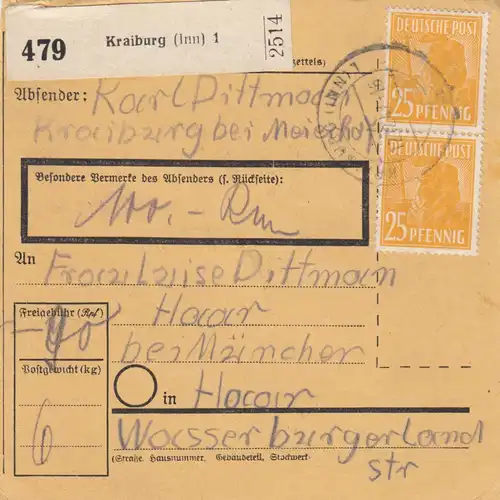 479 Kraiburg (Inn) 1 2514
zettels)
DEUTSCHE POST
25 PFENNIG
DEUTSCHE POST
25 PFENNIG
Absender: Karl Dittman
Kraiburg bei
Besondere Vermerke des Absenders (s. Rückseite):
100,- Rm
An Frau Luise Dittman
Haar
bei München
in Haar
Wasserburgerland
str
(Straße, Hausnummer, Gebäudeteil, Stockwerk
Freigebühr (Rpf)
90
Postgewicht (kg)
6